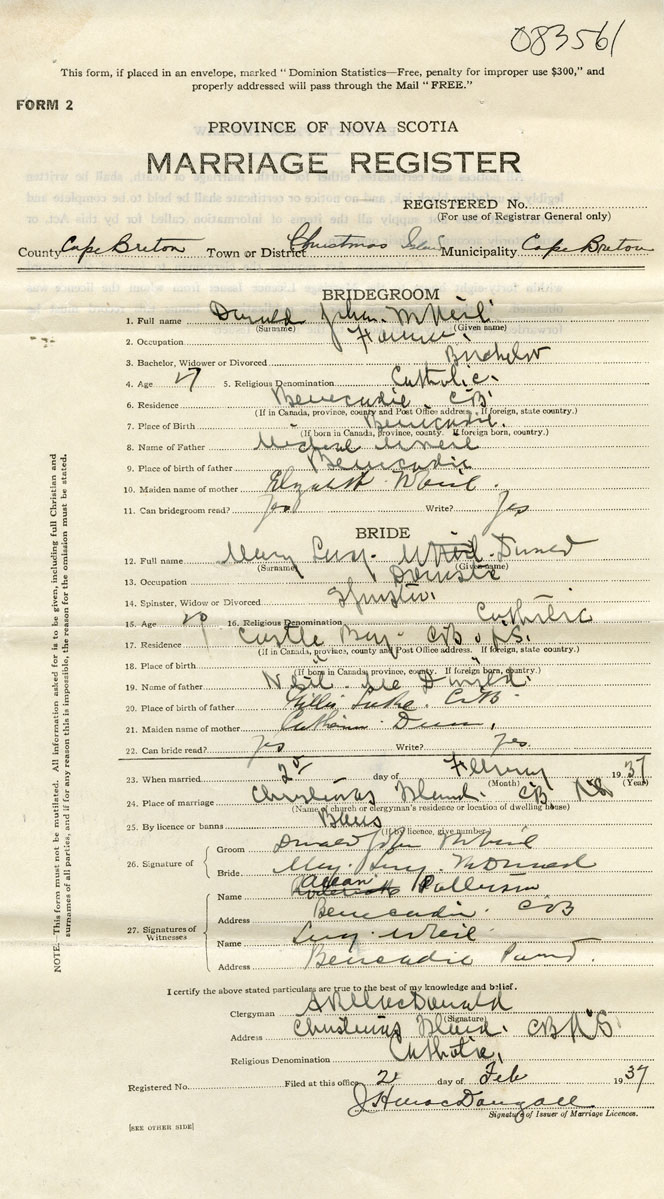 083561
This form, if placed in an envelope, marked "Dominion Statistics—Free, penalty for improper use $300," and
properly addressed will pass through the Mail "FREE."
FORM 2
PROVINCE OF NOVA SCOTIA
MARRIAGE REGISTER
REGISTERED No.
(For use of Registrar General only)
County Cape Breton Town or District Christmas Island Municipality Cape Breton
BRIDEGROOM
1. Full name Donald John McNeil
(Surname) (Given name)
2. Occupation Farmer
3. Bachelor, Widower or Divorced Bachelor
4. Age 27 5. Religious Denomination Catholic
6. Residence Benacadie CB
(If in Canada, province, county and Post Office address. If foreign, state country.)
7. Place of Birth Benacadie
(If born in Canada, province, county. If foreign born, country.)
8. Name of Father Michael McNeil
9. Place of birth of father Benacadie
10. Maiden name of mother McNeil
11. Can bridegroom read? yes Write? yes
BRIDE
12. Full name Mary Lucy
(Surname) (Given name)
13. Occupation Domestic
14. Spinster, Widow or Divorced Spinster
15. Age 16. Religious Denomination Catholic
17. Residence Castle Bay CB N.S.
(If in Canada, province, county and Post Office address. If foreign, state country.)
18. Place of birth
(If born in Canada, province, county. If foreign born, country.)
19. Name of father Neil Mc Donald
20. Place of birth of father Gillis Lake C.B.
21. Maiden name of mother
22. Can bride read? yes Write? yes
23. When married day of February 1937
(Month) (Year)
24. Place of marriage Christmas Island CB NS
(Name of church or clergyman's residence or location of dwelling house)
25. By licence or banns Banns
(If by licence, give number)
26. Signature of
Groom Donald John McNeil
Bride. Mary Lucy McDonald
27. Signatures of Witnesses
Name Patterson
Address Benacadie CB
Name Lucy McNeil
Address Benacadie Pond.
I certify the above stated particulars are true to the best of my knowledge and belief.
Clergyman MacDonald
(Signature)
Address Christmas Island. CB N.S
Religious Denomination Catholic
Registered No. Filed at this office 2 day of Feb 1937
MacDougall
Signature of Issuer of Marriage Licences.
[SEE OTHER SIDE]
NOTE.—This form must not be mutilated. All information asked for is to be given, including full Christian and
surnames of all parties, and if for any reason this is impossible, the reason for the omission must be stated.